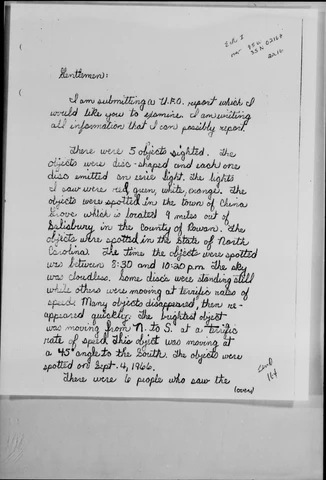 Gentlemen:
I am submitting a U.F.O. report which I
would like you to examine. I am writing
all information that I can possibly report.
There were 5 objects sighted. The
objects were disc-shaped and each one
disc emitted an eerie light. The lights
I saw were red, green, white, orange. The
objects were spotted in the town of China
Grove which is located 9 miles out of
Salisbury in the County of Rowan. The
objects were spotted in the State of North
Carolina. The time the objects were spotted
was between 8:30 and 10:30 p.m. The sky
was cloudless. Some discs were standing still
while others were moving at terrific rates of
speed. Many objects disappeared, then re-
appeared quickly. The brightest object
was moving from N. to S. at a terrific
rate of speed. This object was moving at
a 45° angle to the South. The objects were
spotted on Sept. 4, 1966.
There were 6 people who saw the
(over)